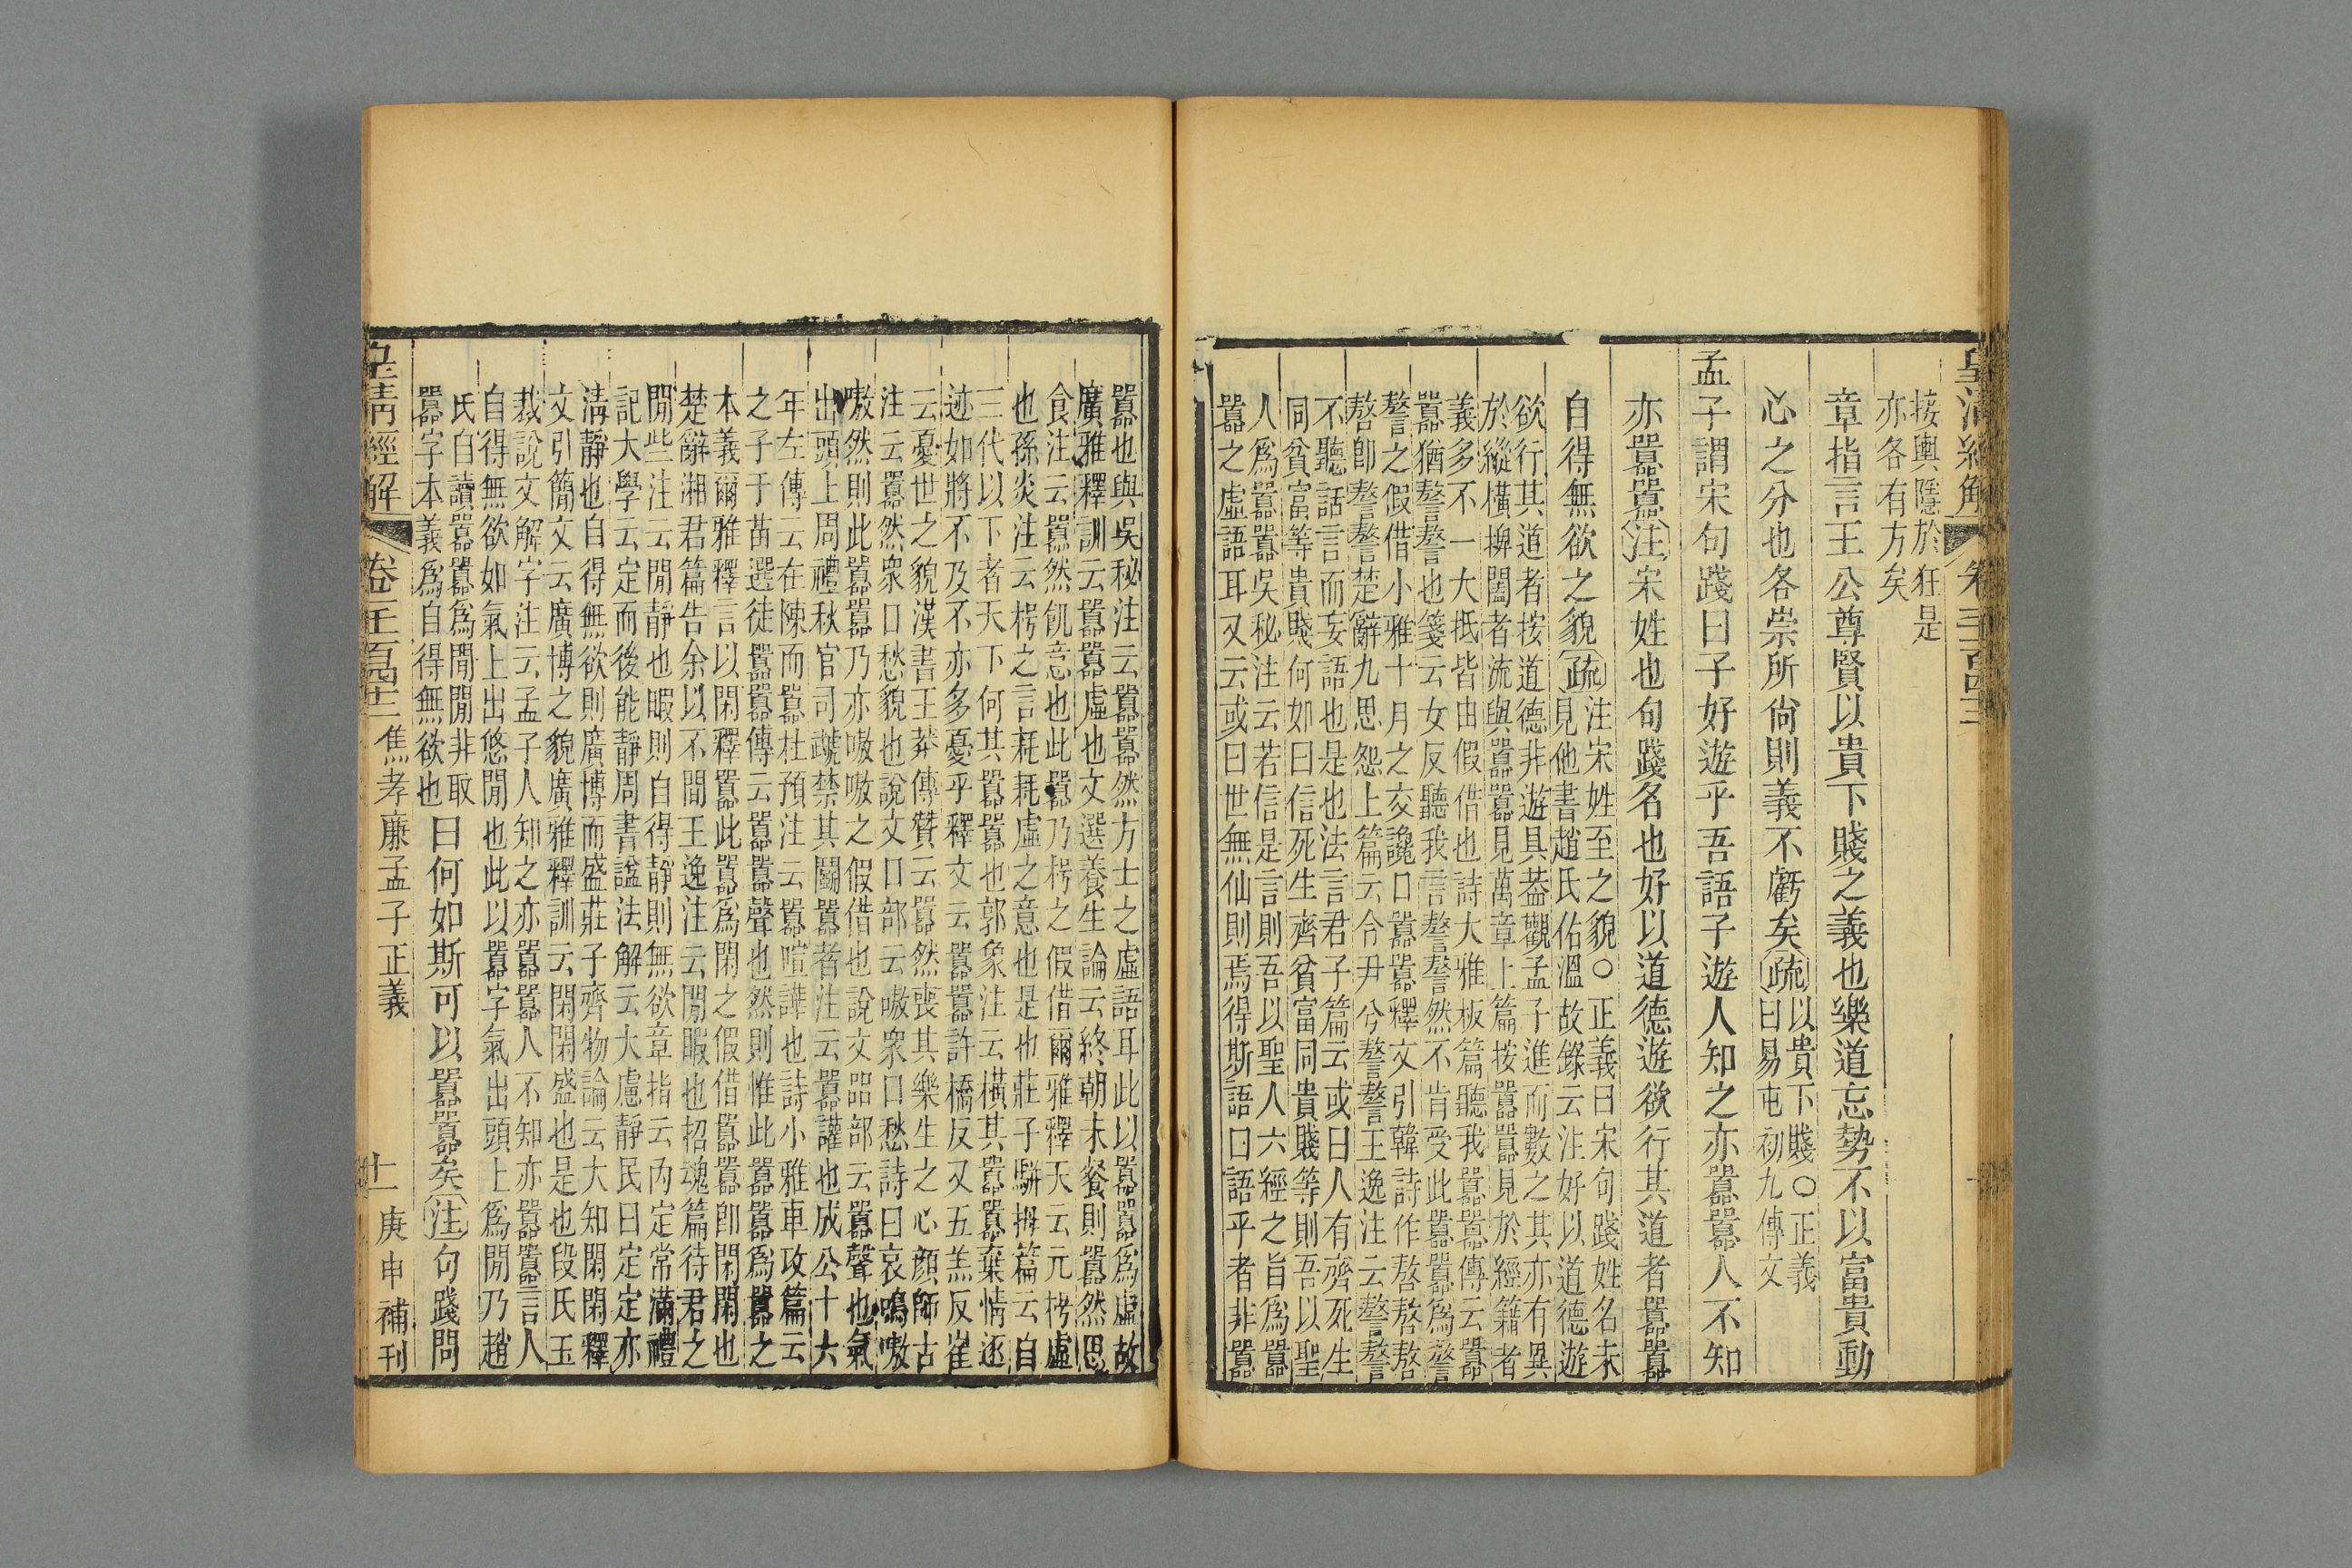 皇清經解 卷
接輿隱於狂是
亦各有方矣
章指言王公尊賢以貴下賤之義也樂道忘勢不以富貴動
心之分也各崇所尙則義不虧矣疏以貴下賤○正義
曰易屯初九傳文
孟子謂宋句踐曰子好遊乎吾語子遊人知之亦囂囂人不知
亦囂囂注宋姓也句踐名也好以道德遊欲行其道者囂囂
自得無欲之貌疏注宋姓至之貌○正義曰宋句踐姓名未
見他書趙氏佑溫故錄云注好以道德遊
欲行其道者按道德非遊具葢觀孟子進而數之其亦有異
於縱橫捭闔者流與囂囂見萬章上篇按囂囂見於經籍者
義多不一大抵皆由假借也詩大雅板篇聽我囂囂傳云囂
囂猶謷謷也箋云女反聽我言謷謷然不肯受此囂囂爲謷
謷之假借小雅十月之交讒口囂囂釋文引韓詩作嗸嗸嗸
嗸卽謷謷楚辭九思怨上篇云令尹兮謷謷王逸注云謷謷
不聽話言而妄語也是也法言君子篇云或曰人有齊死生
同貧富等貴賤何如曰信死生齊貧富同貴賤等則吾以聖
人爲囂囂吳秘注云若信是言則吾以聖人六經之旨爲囂
囂之虛語耳又云或曰世無仙則焉得斯語曰語乎者非囂
囂也與吳秘注云囂囂然方士之虛語耳此以囂囂爲虛故
廣雅釋訓云囂囂虛也文選養生論云終朝未餐則囂然思
食注云囂然飢意也此囂乃枵之假借爾雅釋天云元枵虛
也孫炎注云枵之言耗耗虛之意也是也莊子駢拇篇云自
三代以下者天下何其囂囂也郭象注云橫其囂囂棄情逐
迹如將不及不亦多憂乎釋文云囂囂許橋反又五羔反崔
云憂世之貌漢書王莽傳贊云囂然喪其樂生之心顏師古
注云囂然衆口愁貌也說文口部云嗷衆口愁詩曰哀鳴嗷
嗷然則此囂囂乃亦嗷嗷之假借也說文㗊部云囂聲也氣
出頭上周禮秋官司虣禁其鬭囂者注云囂讙也成公十六
年左傳云在陳而囂杜預注云囂喧譁也詩小雅車攻篇云
之子于苗選徒囂囂傳云囂囂聲也然則惟此囂囂爲囂之
本義爾雅釋言以閑釋囂此囂爲閑之假借囂囂卽閑閑也
楚辭湘君篇告余以不閒王逸注云閒暇也招魂篇待君之
閒些注云閒靜也暇則自得靜則無欲章指云內定常滿禮
記大學云定而後能靜周書諡法解云大慮靜民曰定定亦
淸靜也自得無欲則廣博而盛莊子齊物論云大知閑閑釋
文引簡文云廣博之貌廣雅釋訓云閑閑盛也是也段氏玉
裁說文解字注云孟子人知之亦囂囂人不知亦囂囂言人
自得無欲如氣上出悠閒也此以囂字氣出頭上爲閒乃趙
氏自讀囂囂爲閒閒非取
囂字本義爲自得無欲也曰何如斯可以囂囂矣注句踐問
皇淸經解 卷 焦孝廉孟子正義 十一 庚申補刊